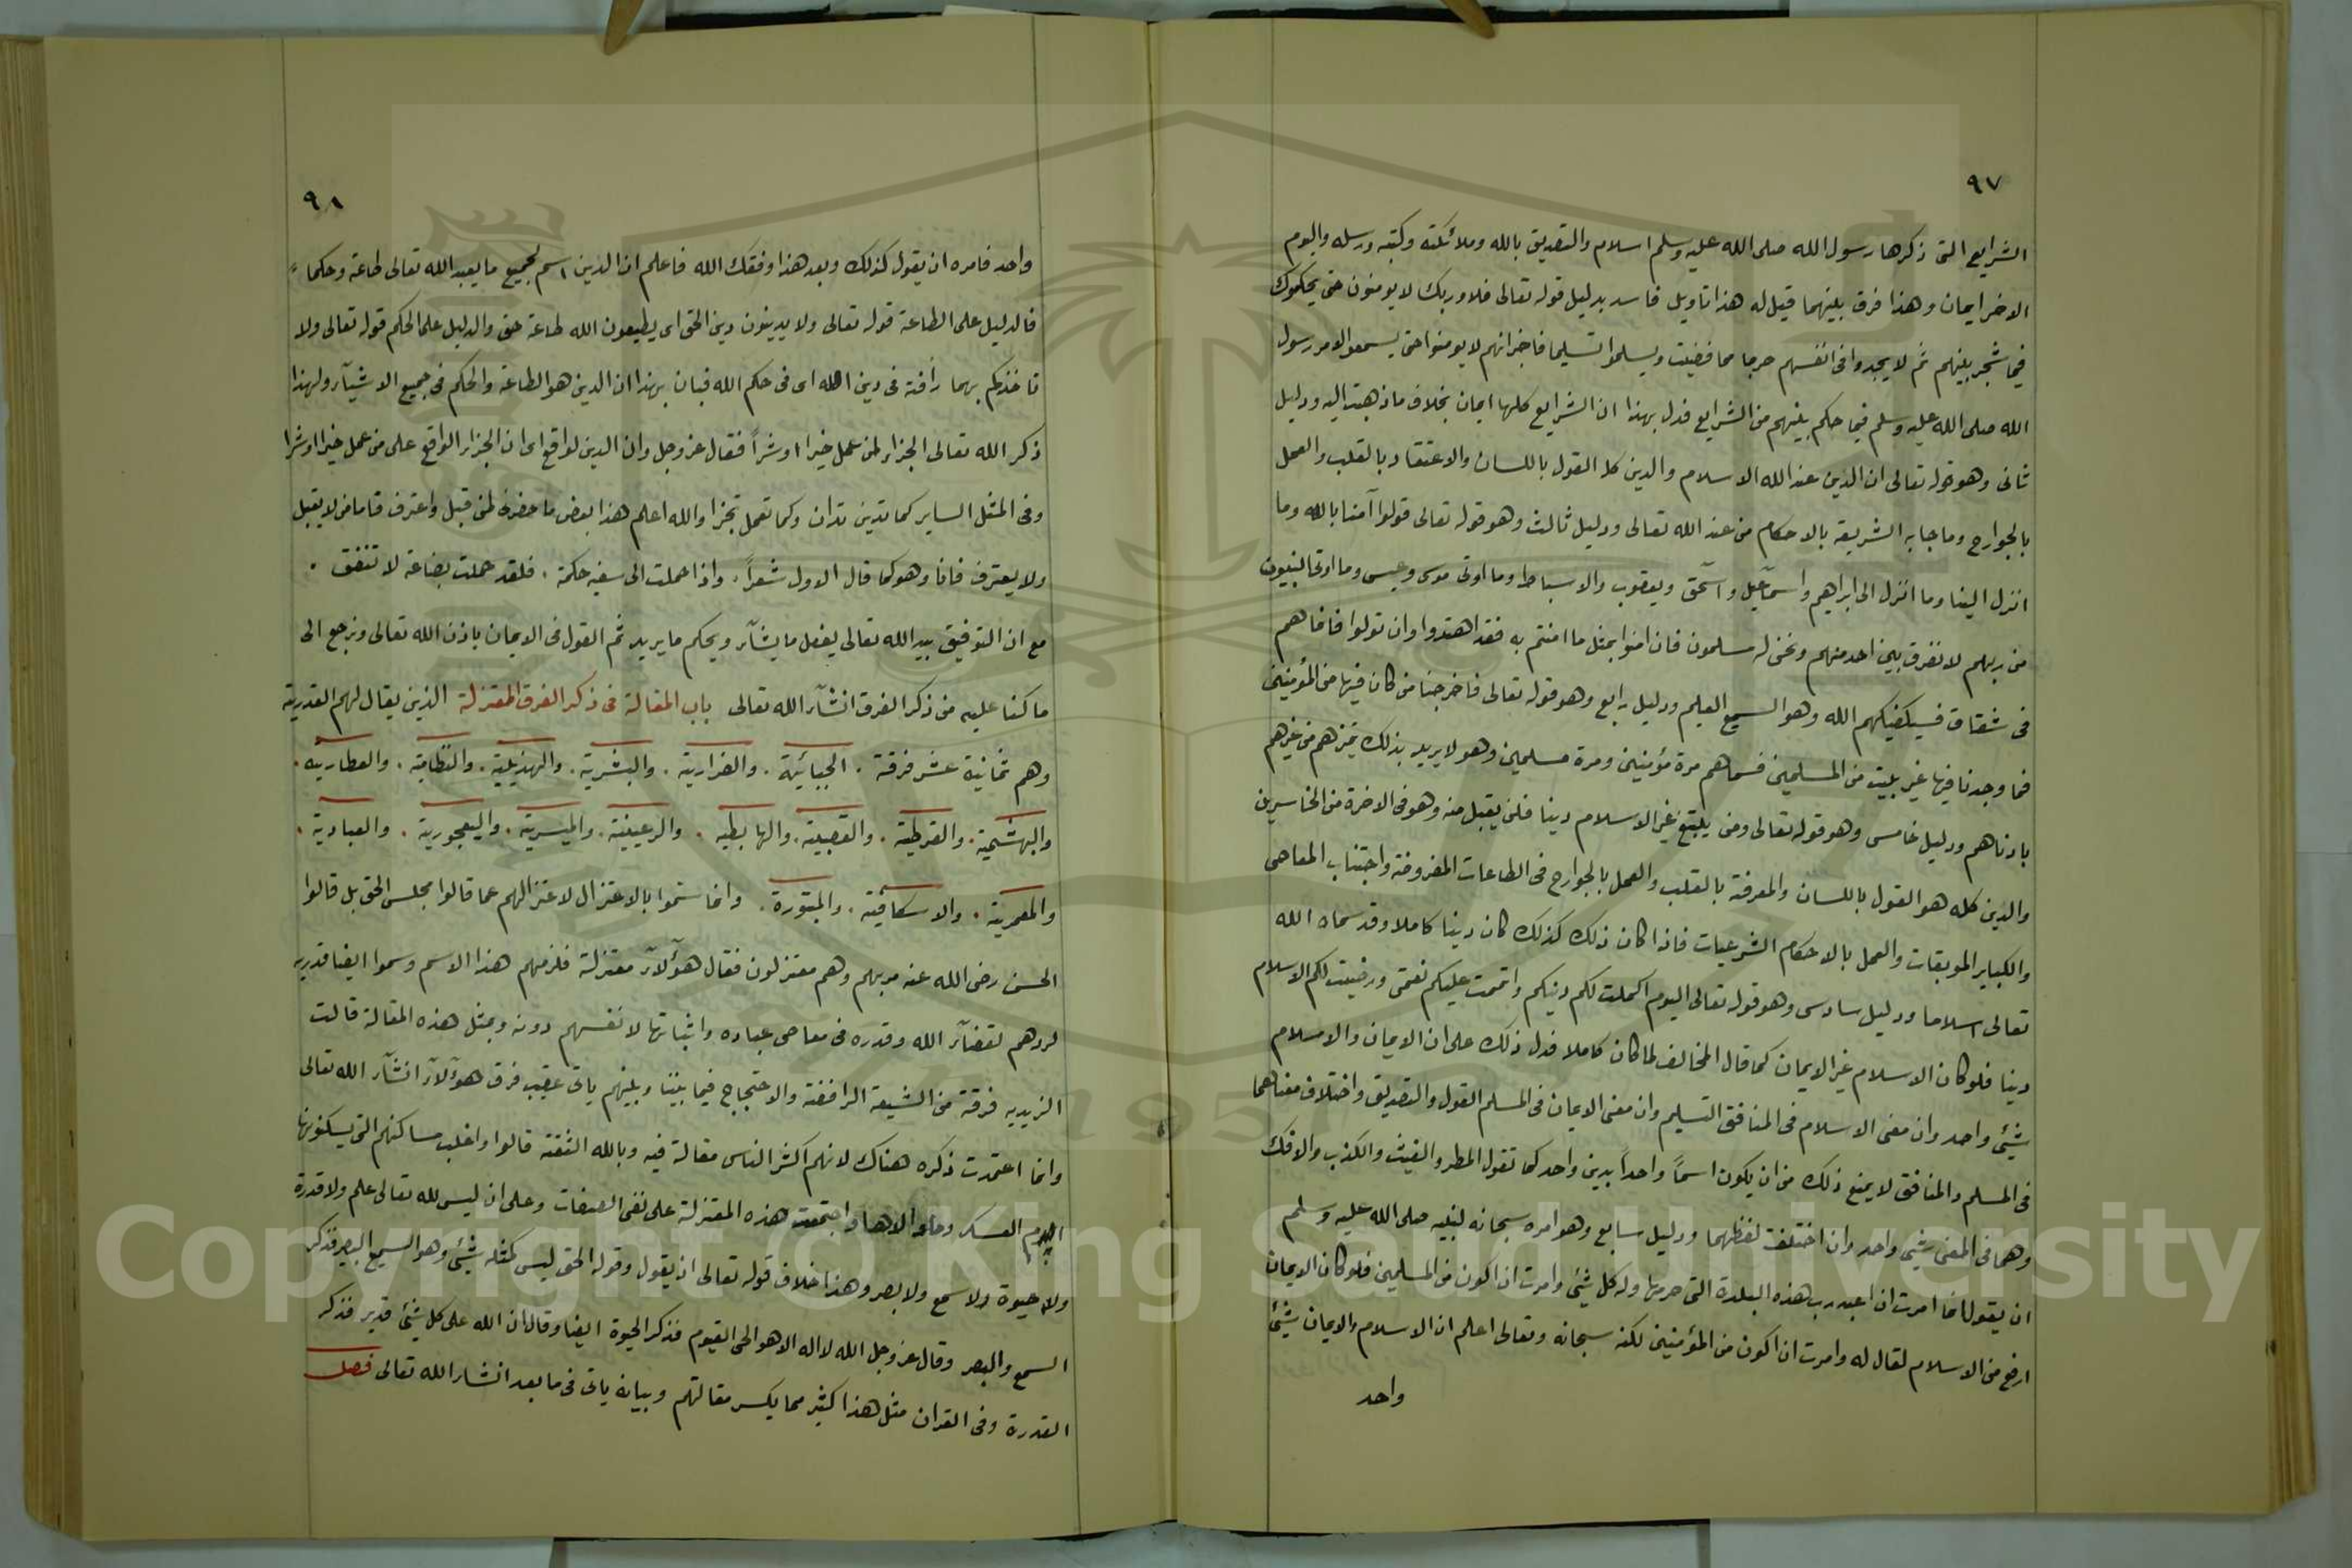 ٩٧
الشرايع التى ذكرها رسول الله صلى الله عليه وسلم اسلام والتصديق بالله وملائكته وكتبه ورسله واليوم
الاخر ايمان وهذا فرق بينهما قيل له هذا تاويل فاسد بدليل قوله تعالى فلا وربك لا يومنون حتى يحكموك
فيما شجر بينهم ثم لا يجدوا فى انفسهم حرجا مما قضيت ويسلموا تسليما فاخبر انهم لا يومنوا حتى يسمعوا لامر رسول
الله صلى الله عليه وسلم فيما حكم بينهم من الشرايع فدل بهذا ان الشرايع كلها ايمان بخلاف ما ذهبت اليه ودليل
ثانى وهو قوله تعالى ان الدين عند الله الاسلام والدين كل القول باللسان والاعتقاد بالقلب والعمل
بالجوارح وما جا به الشريعة بالاحكام من عند الله تعالى ودليل ثالث وهو قوله تعالى قولوا آمنا بالله وما
انزل الينا وما انزل الى ابراهيم واسمآعيل واسحٓق ويعقوب والاسباط وما اوتى موسى وعيسى وما اوتى النبيون
من ربهم لا نفرق بين احد منهم ونحن له مسلمون فان امنوا بمثل ما امنتم به فقد اهتدوا وان تولوا فانما هم
فى شقاق فسيكفيكهم الله وهو السميع العليم ودليل رابع وهو قوله تعالى فاخرجنا من كان فيها من المؤمنين
فما وجدنا فيها غير بيت من المسلمين فسماهم مرة مؤمنين ومرة مسلمين وهو لا يريد بذلك تميزهم من غيرهم
بادناهم ودليل خامس وهو قوله تعالى ومن يبتغ غير الاسلام دينا فلن يقبل منه وهو فى الاخرة من الخاسرين
والدين كله هو القول باللسان والمعرفة بالقلب والعمل بالجوارح فى الطاعات المفروضة واجتناب المعاصى
والكباير الموبقات والعمل بالاحكام الشرعيات فاذا كان ذلك كذلك كان دينا كاملا وقد سماه الله
تعالى اسلاما ودليل سادس وهو قوله تعالى اليوم اكملت لكم دينكم واتممت عليكم نعمتى ورضيت لكم الاسلام
دينا فلو كان الاسلام غير الايمان كما قال المخالف لما كان كاملا فدل ذلك على ان الايمان والاسلام
شيئ واحد وان معنى الاسلام فى المنافق التسليم وان معنى الايمان فى المسلم القول والتصديق واختلاف معناهما
فى المسلم والمنافق لا يمنع ذلك من ان يكون اسمًا واحداً بدين واحد كما تقول المطر والغيث والكذب والافك
وهما فى المعنى شيئ واحد وان اختلفت لفظهما ودليل سابع وهو امره سبحانه لنبيه صلى الله عليه وسلم
ان يقول انما امرت ان اعبد رب هذه البلدة التى حرمها وله كل شيئ وامرت ان اكون من المسلمين فلو كان الايمان
ارفع من الاسلام لقال له وامرت ان اكون من المؤمنين لكنه سبحانه وتعالى اعلم ان الاسلام والايمان شيئ
واحد
٩٨
واحد فامره ان يقول كذلك وبعد هذا وفقك الله فاعلم ان الدين اسم لجميع ما يعبد الله تعالى طاعة وحكماً
فالدليل على الطاعة قوله تعالى ولا يدينون دين الحق اى يطيعون الله طاعة حق والدليل على الحكم قوله تعالى ولا
تاخذكم بهما رافة فى دين الله اى فى حكم الله فبان بهذا ان الدين هو الطاعة والحكم فى جميع الاشيآء ولهذا
ذكر الله تعالى الجزاء لمن عمل خيرا او شراً فقال عز وجل وان الدين لواقع اى ان الجزاء الواقع على من عمل خيرا او شرا
وفى المثل الساير كما تدين تدان وكما تعمل تجزا والله اعلم هذا بعض ما حضرنى لمن قبل واعترف فاما من لا يقبل
ولا يعترف فانا وهو كما قال الاول شعراً. واذا حملت الى سفيه حكمة. فلقد حملت بضاعة لا تنفق.
مع ان التوفيق بيد الله تعالى يفعل ما يشآء ويحكم ما يريد ثم القول فى الايمان باذن الله تعالى ونرجع الى
ما كنا عليه من ذكر الفرق انشآء الله تعالى باب المقالة فى ذكر الفرق المعتزلة الذين يقال لهم القدرية
وهم ثمانية عشر فرقة. الجبائية. والضرارية. والبشرية. والهذيلية. والنظامية. والعطارية.
والبهشمية. والقرطية. والقصبية. والهابطيه. والرعينية. والميسرية. واليعجورية. والعبادية.
والمعمرية. والاسكافية. والمبتورة. وانما سموا بالاعتزال لاعتزالهم عما قالوا مجلس الحق بل قالوا
الحسن رضى الله عنه مر بهم وهم معتزلون فقال هوٓلآء معتزلة فلزمهم هذا الاسم وسموا ايضا قدريه
لردهم لقضآء الله وقدره فى معاصى عباده واثباتها لانفسهم دونه وبمثل هذه المقالة قالت
الزيديه فرقة من الشيعة الرافضة والاحتجاج فيما بيننا وبينهم ياتى عقيب فرق هوٓلآء انشآء الله تعالى
وانما اعتمدت ذكره هناك لانهم اكثر الناس مقالة فيه وبالله الثقة قالوا واغلب مساكنهم التى يسكنونها
العسكر والاهواز واجتمعت هذه المعتزلة على نفى الصفات وعلى ان ليس لله تعالى علم ولا قدرة
ولا حيوة ولا سمع ولا بصر وهذا خلاف قوله تعالى اذ يقول وقوله الحق ليس كمثله شيئ وهو السميع البصير فذكر
السمع والبصر وقال عز وجل الله لا اله الا هو الحى القيوم فذكر الحيوة ايضا وقال ان الله على كل شيئ قدير فذكر
القدرة وفى القران مثل هذا كثير مما يكسر مقالتهم وبيانه ياتى فى ما بعد انشاء الله تعالى فصل
Copyright © King Saud University
1957